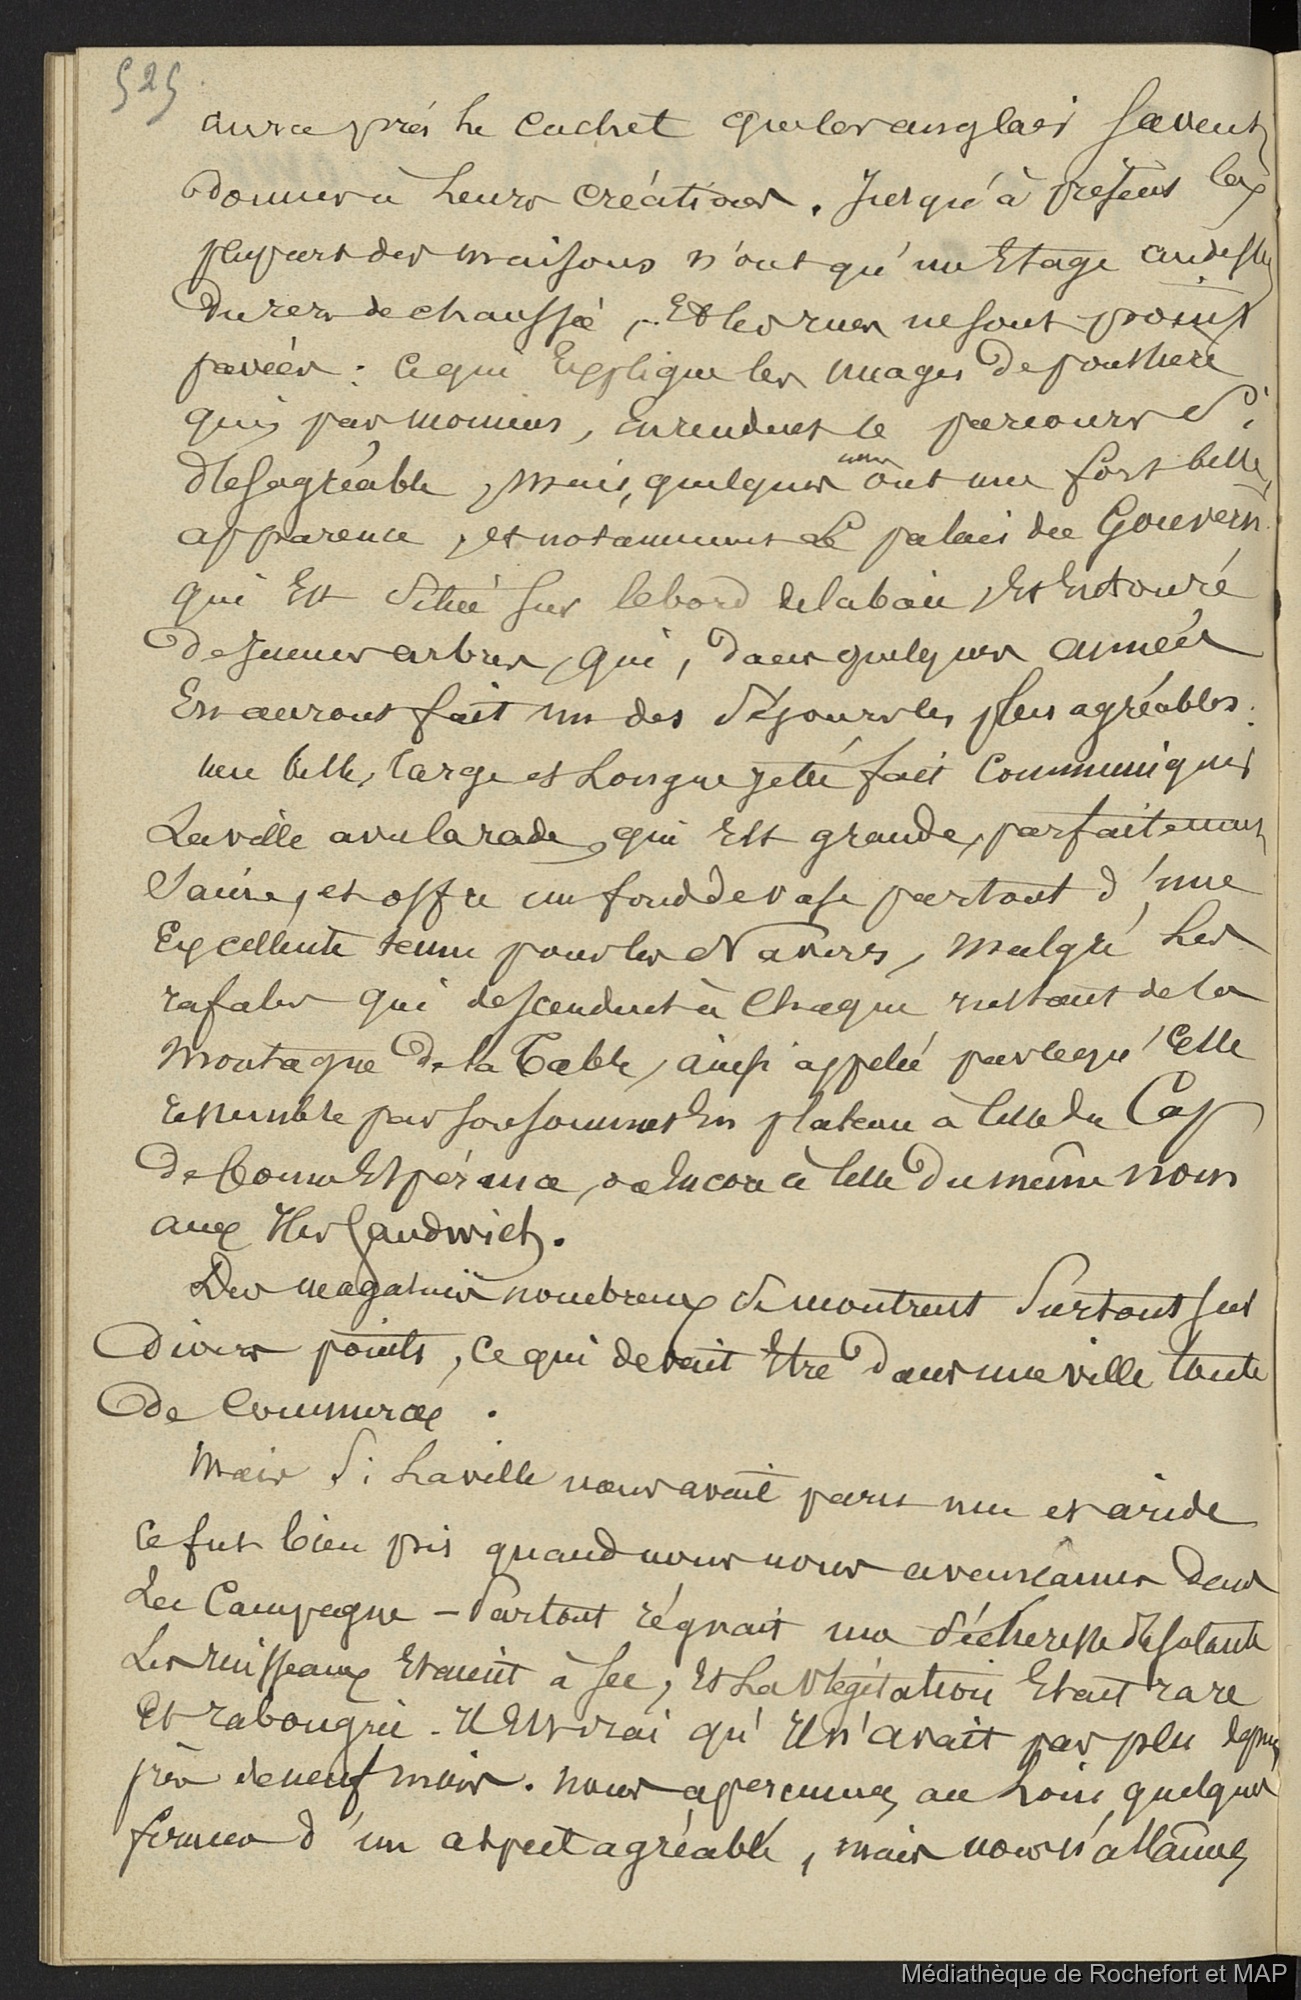 525
aura pris le cachet que les anglais savent
donner à leurs créations. Jusqu'à présent la
plupart des maisons n'ont qu'un Etage au dessus
du rez de chaussée, Et les rues ne sont point
pavées : ce qui Explique les nuages de poussière
qui, par momens, En rendent le parcours si
désagréable, mais, quelques unes ont une fort belle
apparence, et notamment le palais du Gouvern.
qui Est situé sur le bord de la baie, Et Entouré
de jeunes arbres, qui, dans quelques années
En auront fait un des séjours les plus agréables.
une belle, large et Longue jetée fait communiquer
La ville avec la rade, qui Est grande, parfaitement
saine, et offre un fond de vase partout d'une
Excellente tenue pour les Navires, malgré Les
rafales qui descendent à Chaque instant de la
Montagne de la Table, ainsi appelée parce qu'Elle
ressemble par son sommet En plateau à celle du Cap
de Bonne Espérance, ou Encore à celle du même nom
aux Iles Sandwich.
Des magasins nombreux se montrent surtout sur
divers points, ce qui devait Etre dans une ville toute
de Commerce.
Mais si La ville nous avait paru nue et aride
ce fut bien pis quand nous nous avançâmes dans
La Campagne — Partout régnait une sécheresse désolante
Les ruisseaux Etaient à sec, Et La végétation Etait rare
Et rabougrie. Il Est vrai qu'Il n'avait pas plu depuis
près de neuf mois. nous aperçumes au Loin quelques
fermes d'un aspect agréable, mais nous n'allâmes
Médiathèque de Rochefort et MAP